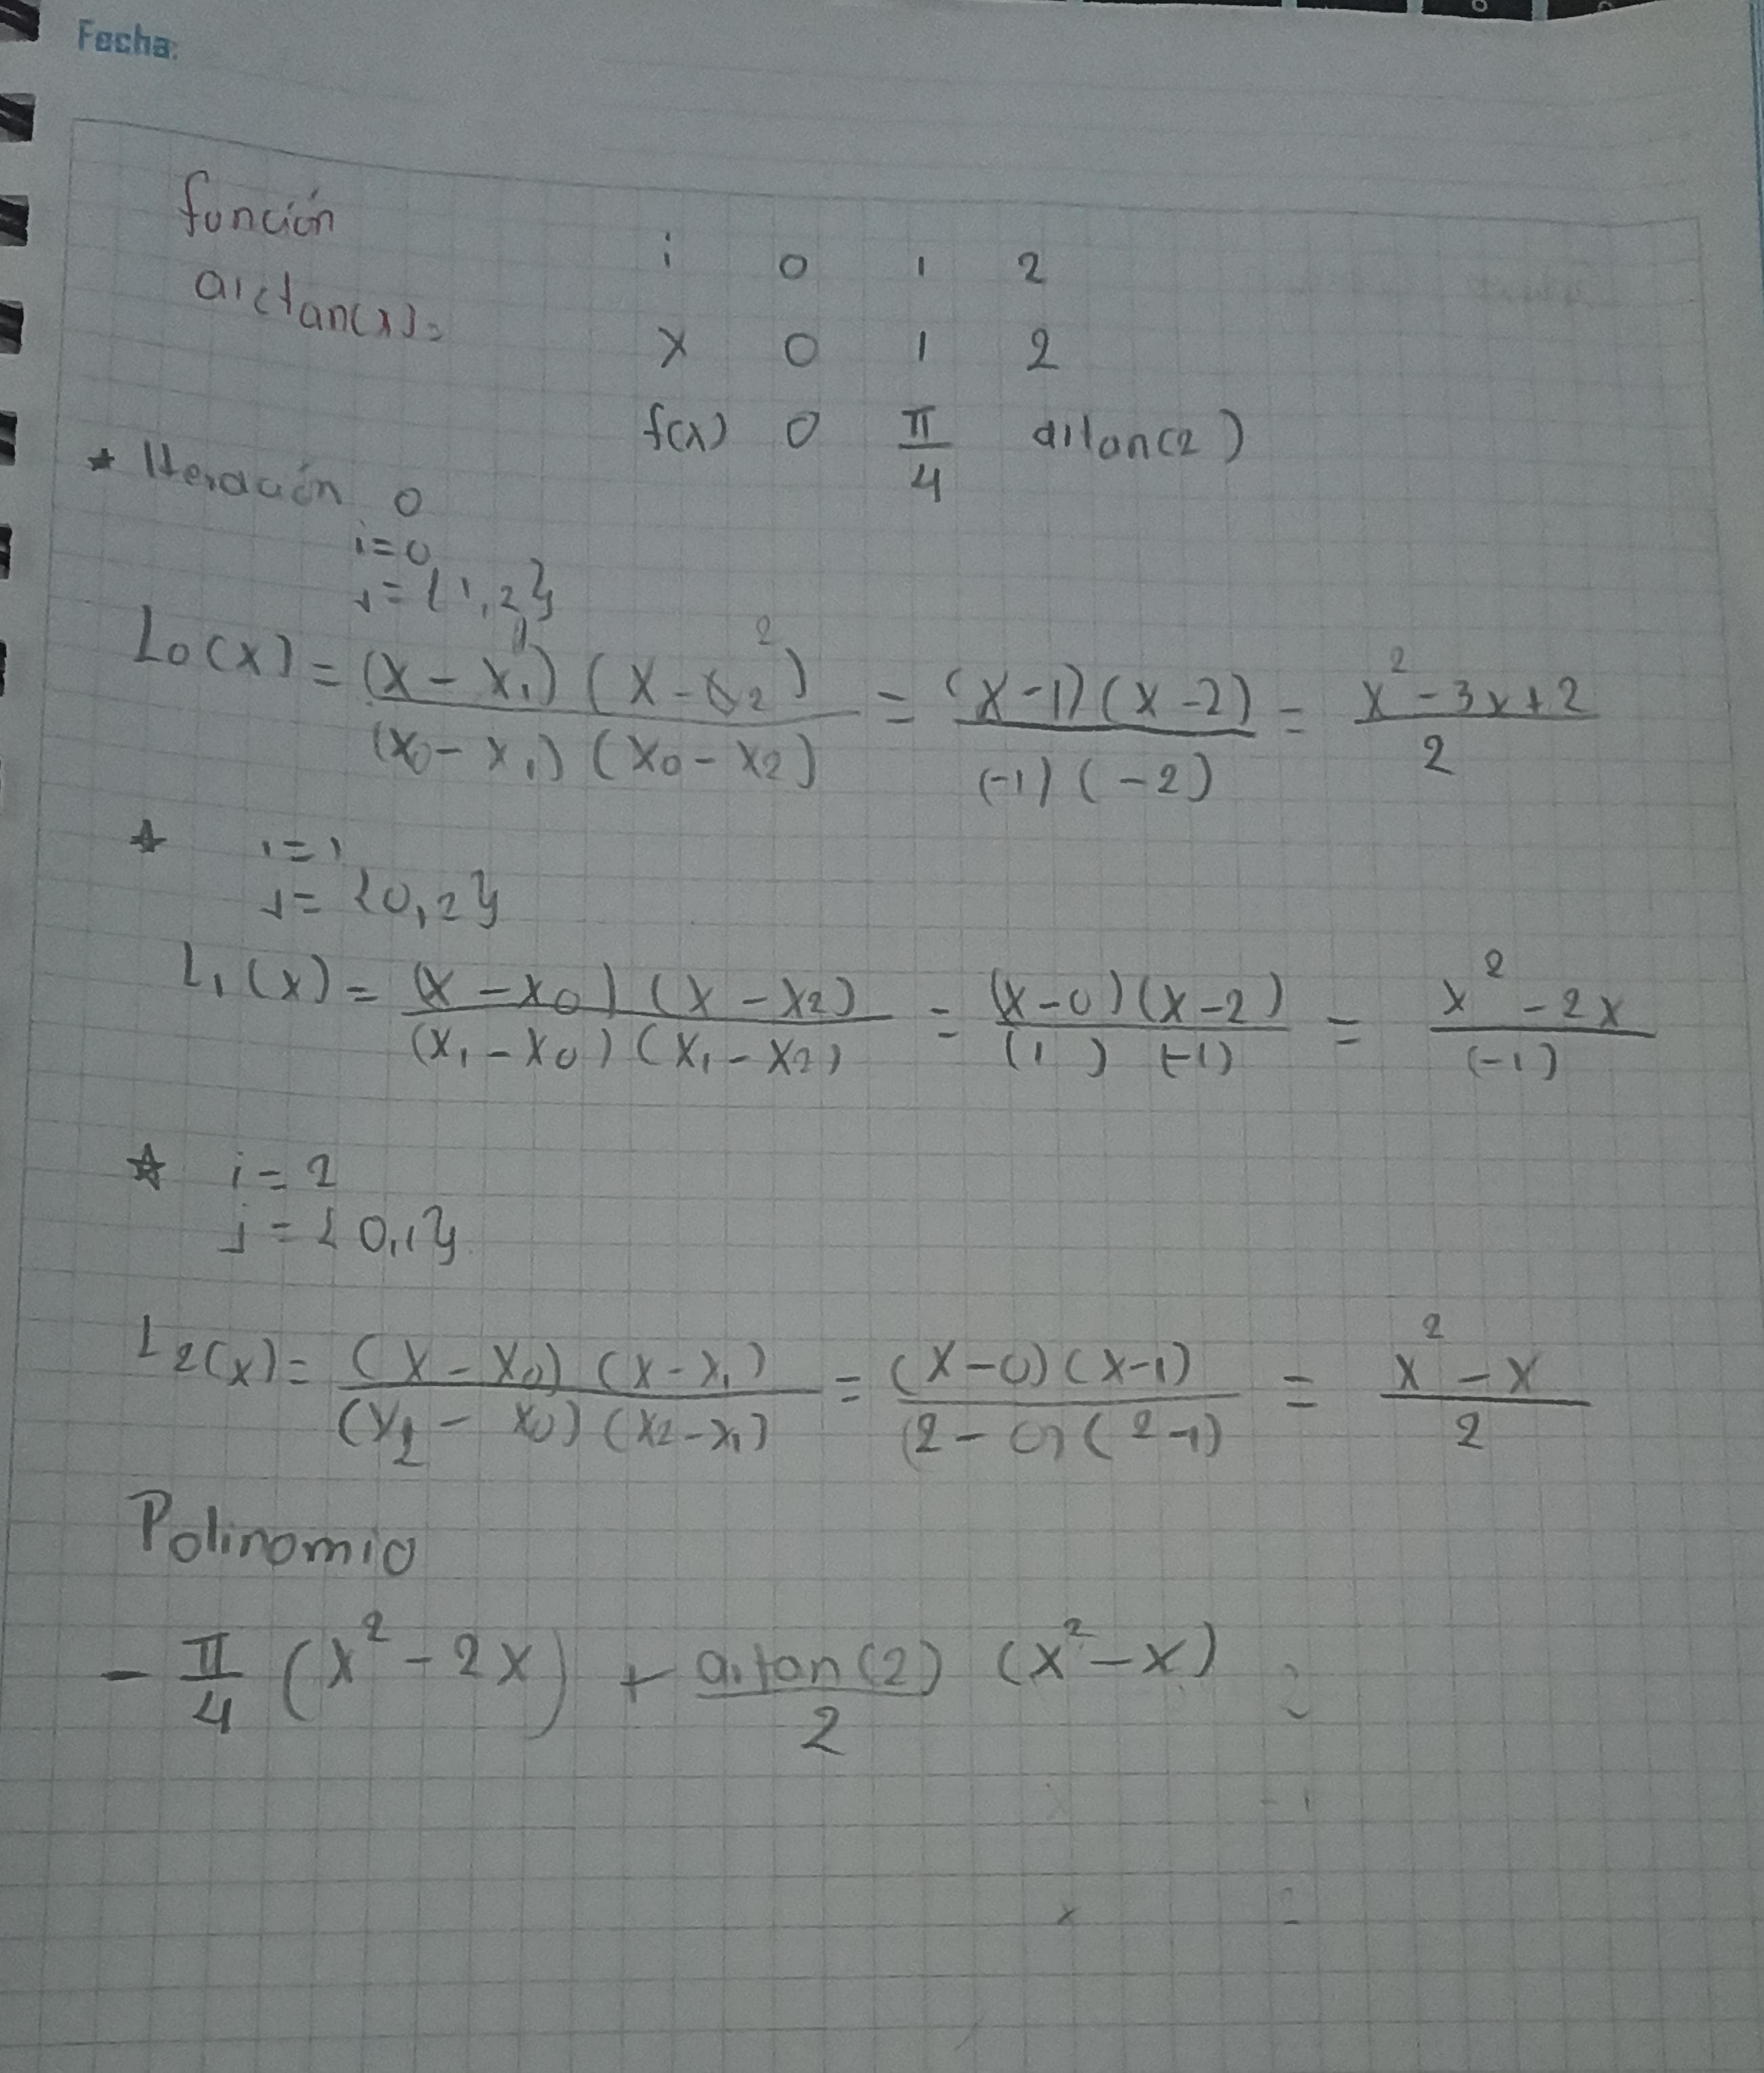 Fecha:
función
arctan(x)=
i 0 1 2
x 0 1 2
f(x) 0 π/4 artan(2)
* Iteración 0
i=0
j={1,2}
L0(x) = (x-x1)(x-x2) / (x0-x1)(x0-x2) = (x-1)(x-2) / (-1)(-2) = x²-3x+2 / 2
* i=1
j={0,2}
L1(x) = (x-x0)(x-x2) / (x1-x0)(x1-x2) = (x-0)(x-2) / (1)(-1) = x²-2x / (-1)
* i=2
j={0,1}
L2(x) = (x-x0)(x-x1) / (x2-x0)(x2-x1) = (x-0)(x-1) / (2-0)(2-1) = x²-x / 2
Polinomio
- π/4 (x²-2x) + artan(2)/2 (x²-x)